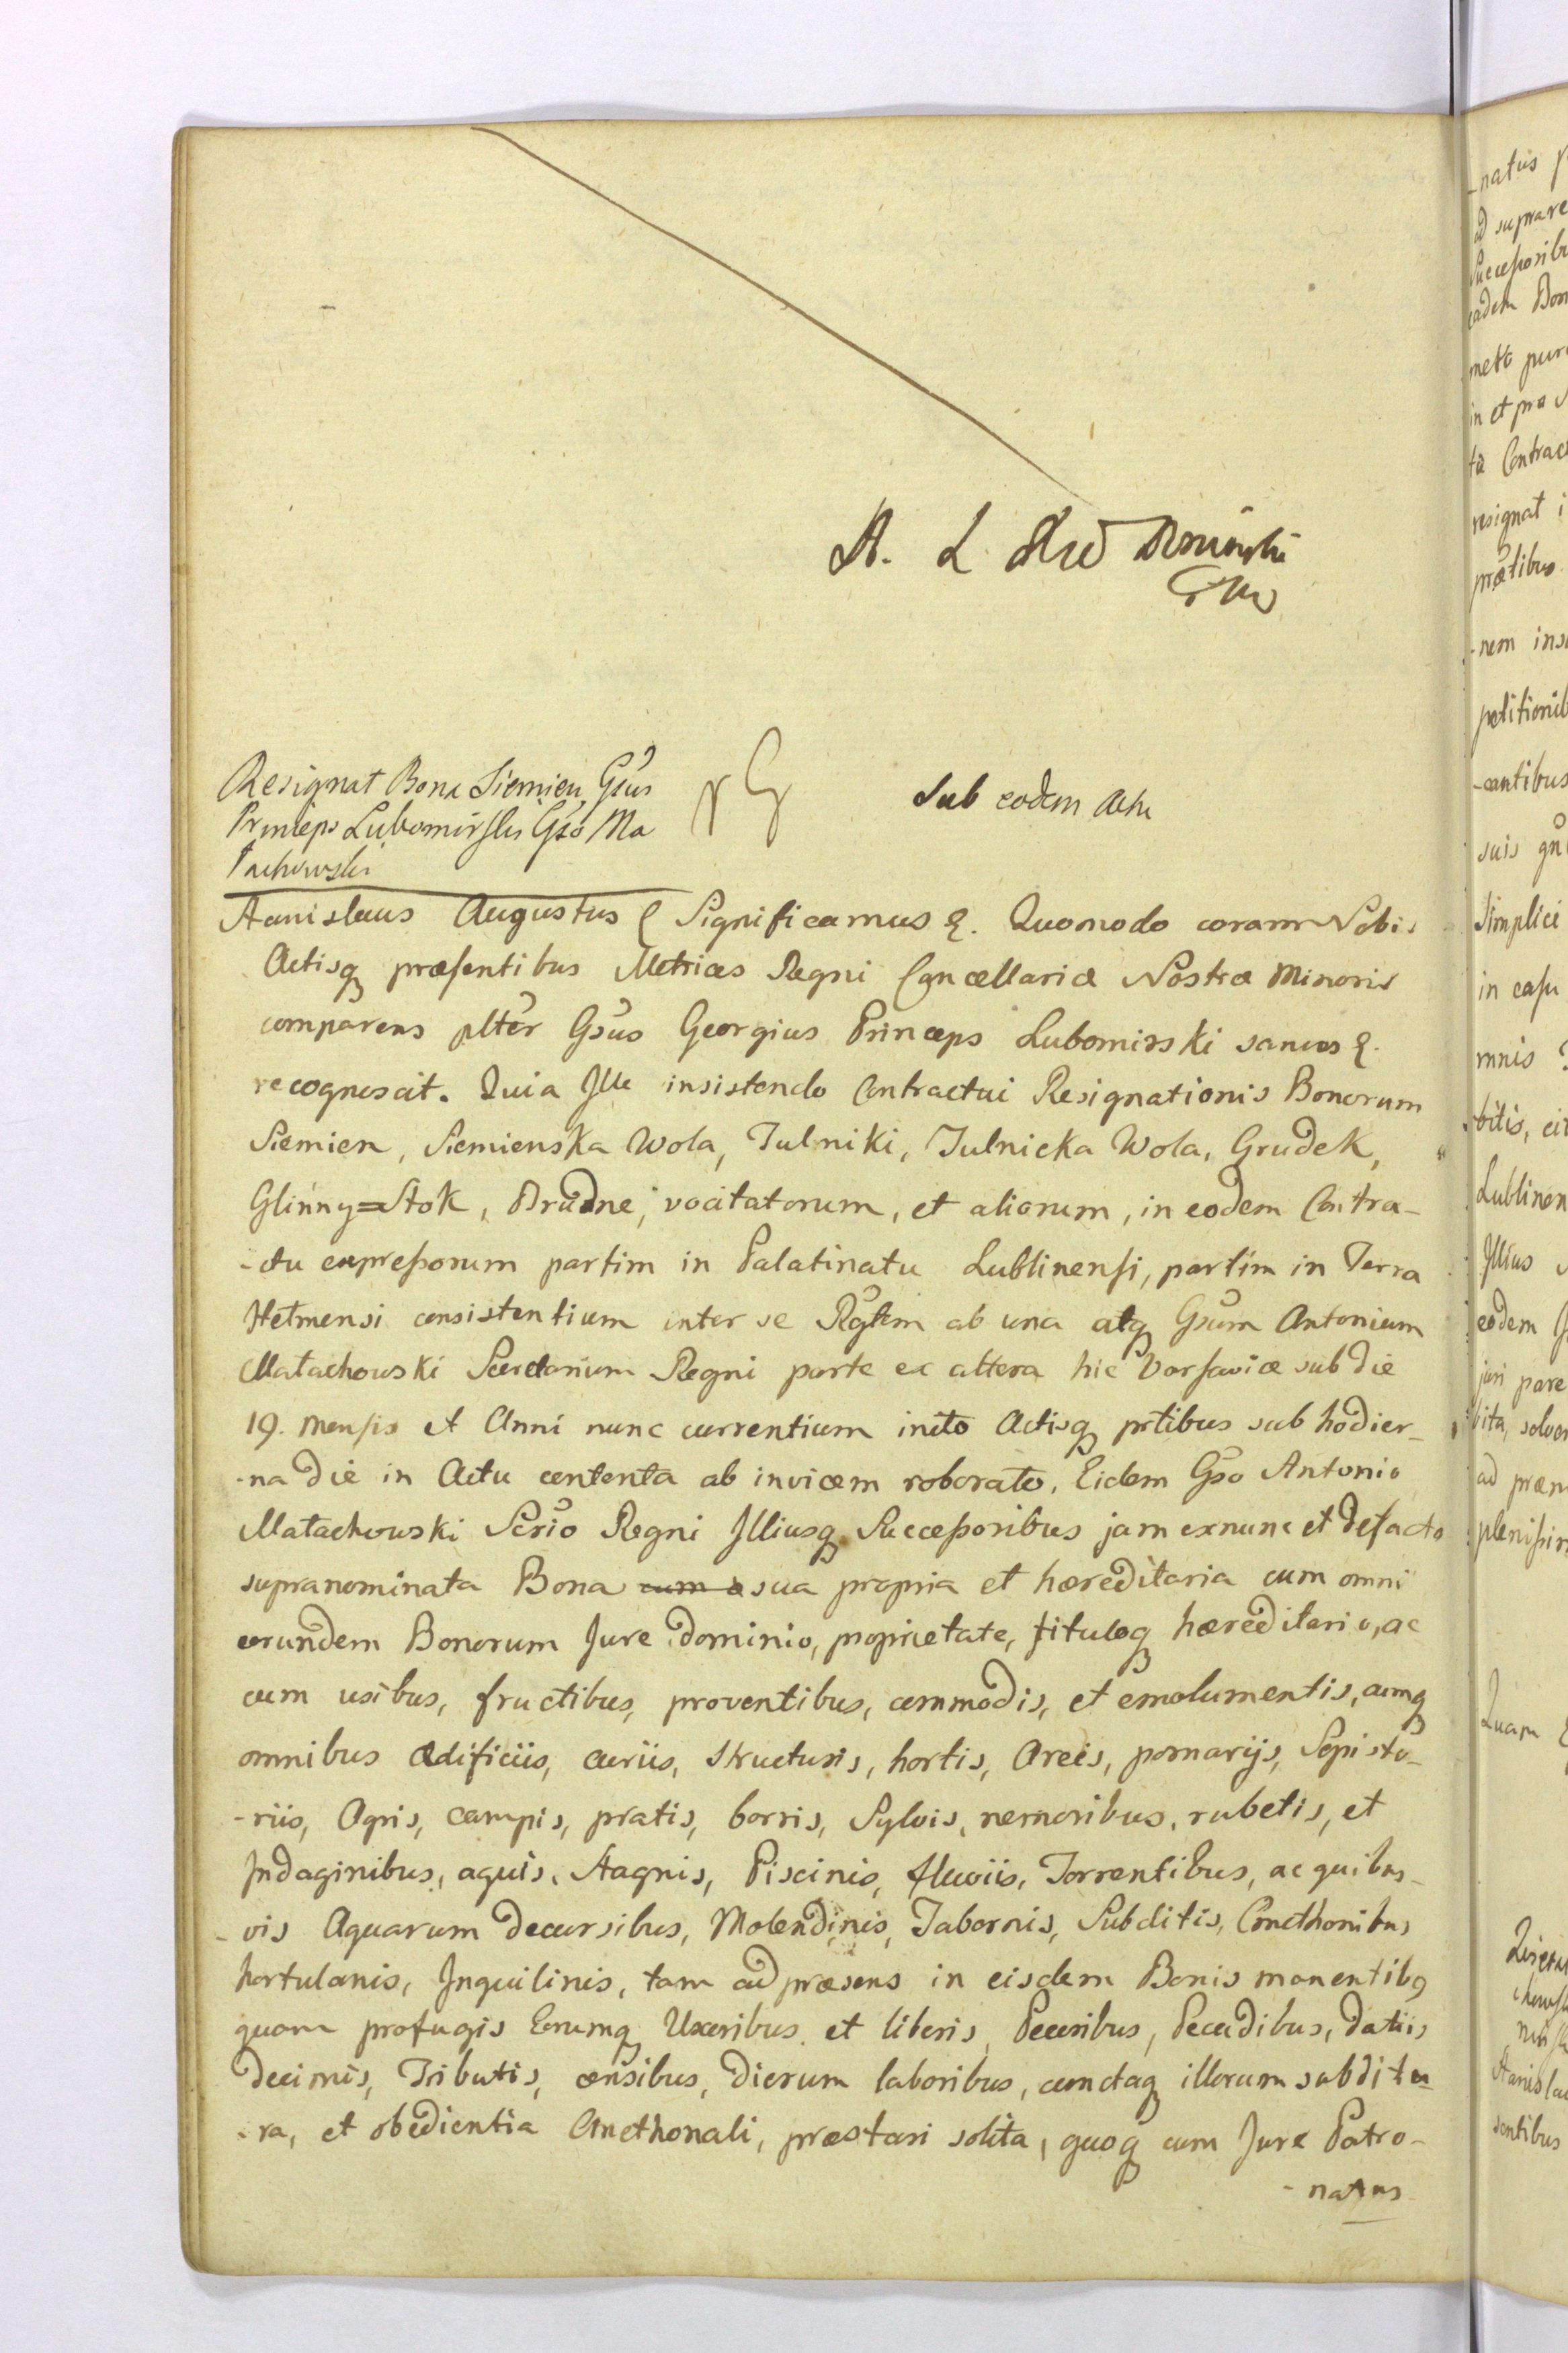 A. L.
Resignat Bona Siemien Gsus
Princeps Lubomirski Gso Ma
łachowski
Sub eodem Actu
Stanislaus Augustus Significamus &. Quomodo coram Nobis
Actisq præsentibus Metrices Regni Cancellariæ Nostræ Minoris
comparens plter Gsus Georgius Princeps Lubomirski sanus &.
recognoscit. Quia Ille insistendo Contractui Resignationis Bonorum
Siemien, Siemienska Wola, Tulniki, Tulnicka Wola, Grudek,
Glinny=Stok, Brudne, vocitatorum, et aliorum, in eodem Contra-
-ctu expressorum partim in Palatinatu Lublinensi, partim in Terra
consistentium inter se Rgtem ab una atq Gsum Antonium
Małachowski Secretarium Regni parte ex altera hic Varsaviæ sub die
19. Mensis et Anni nunc currentium inito Actisq prtibus sub hodier-
-na die in Actu contenta ab invicem roborato, Eidem Gso Antonio
Małachowski Scrio Regni Illiusq Successoribus jam exnunc et defacto
supranominata Bona sua propria et hæreditaria cum omni
eorundem Bonorum Jure dominio, proprietate, tituloq hæreditario, ac
cum usibus, fructibus, proventibus, commodis, et emolumentis, cumq
omnibus ædificiis, curiis, structuris, hortis, Areis, pomarijs, Sepisto-
-riis, Agris, campis, pratis, borris, Sylvis, nemoribus, rubetis, et
Indaginibus, aquis, Stagnis, Piscinis, fluviis, Torrentibus, ac quibus-
-vis Aquarum decursibus, Molendinis, Tabernis, Subditis, Cmethonibus
hortulanis, Inquilinis, tam ad præsens in eisdem Bonis manentibq
quam profugis Eorumq Uxoribus et liberis, Pecoribus, Pecudibus, datiis
decimis, Tributis, censibus, dierum laboribus, cunctaq illorum subditu-
-ra, et obedientia Cmethonali, præstari solita, quoq cum Jure Patro-
-natus